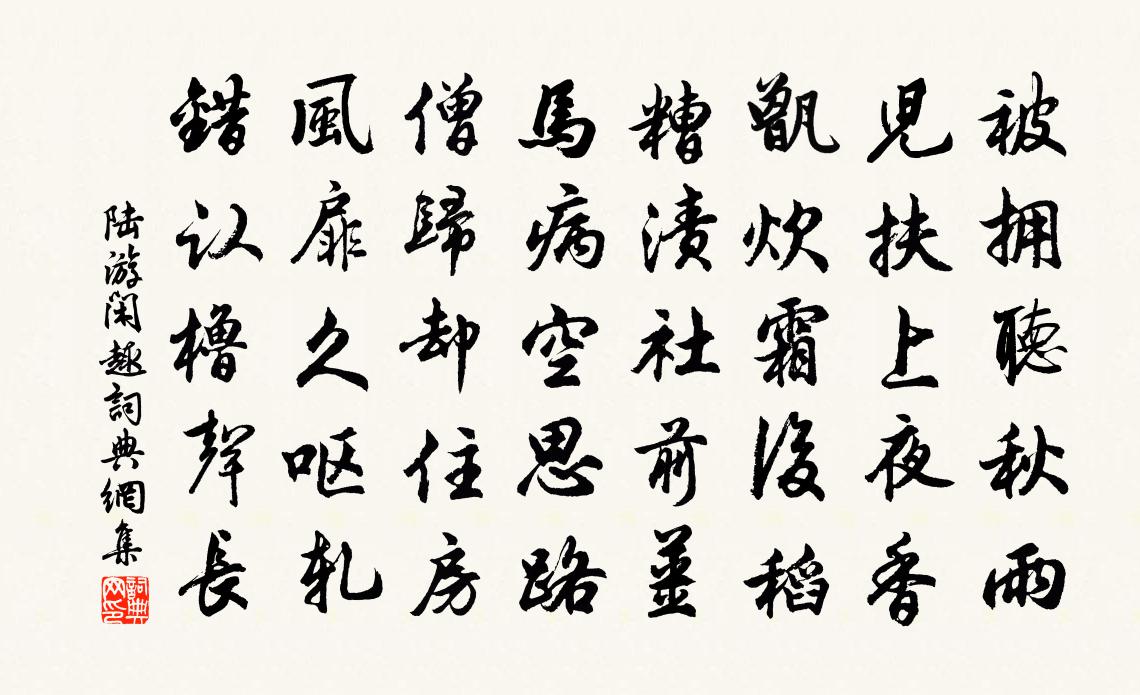 被拥聽秋雨
児扶上夜香
甑炊霜後稻
糟漬社前薑
馬病空思路
僧歸却住房
風扉久呕軋
錯认櫓聲長
陆游闲趣詞典網集
詞典网印